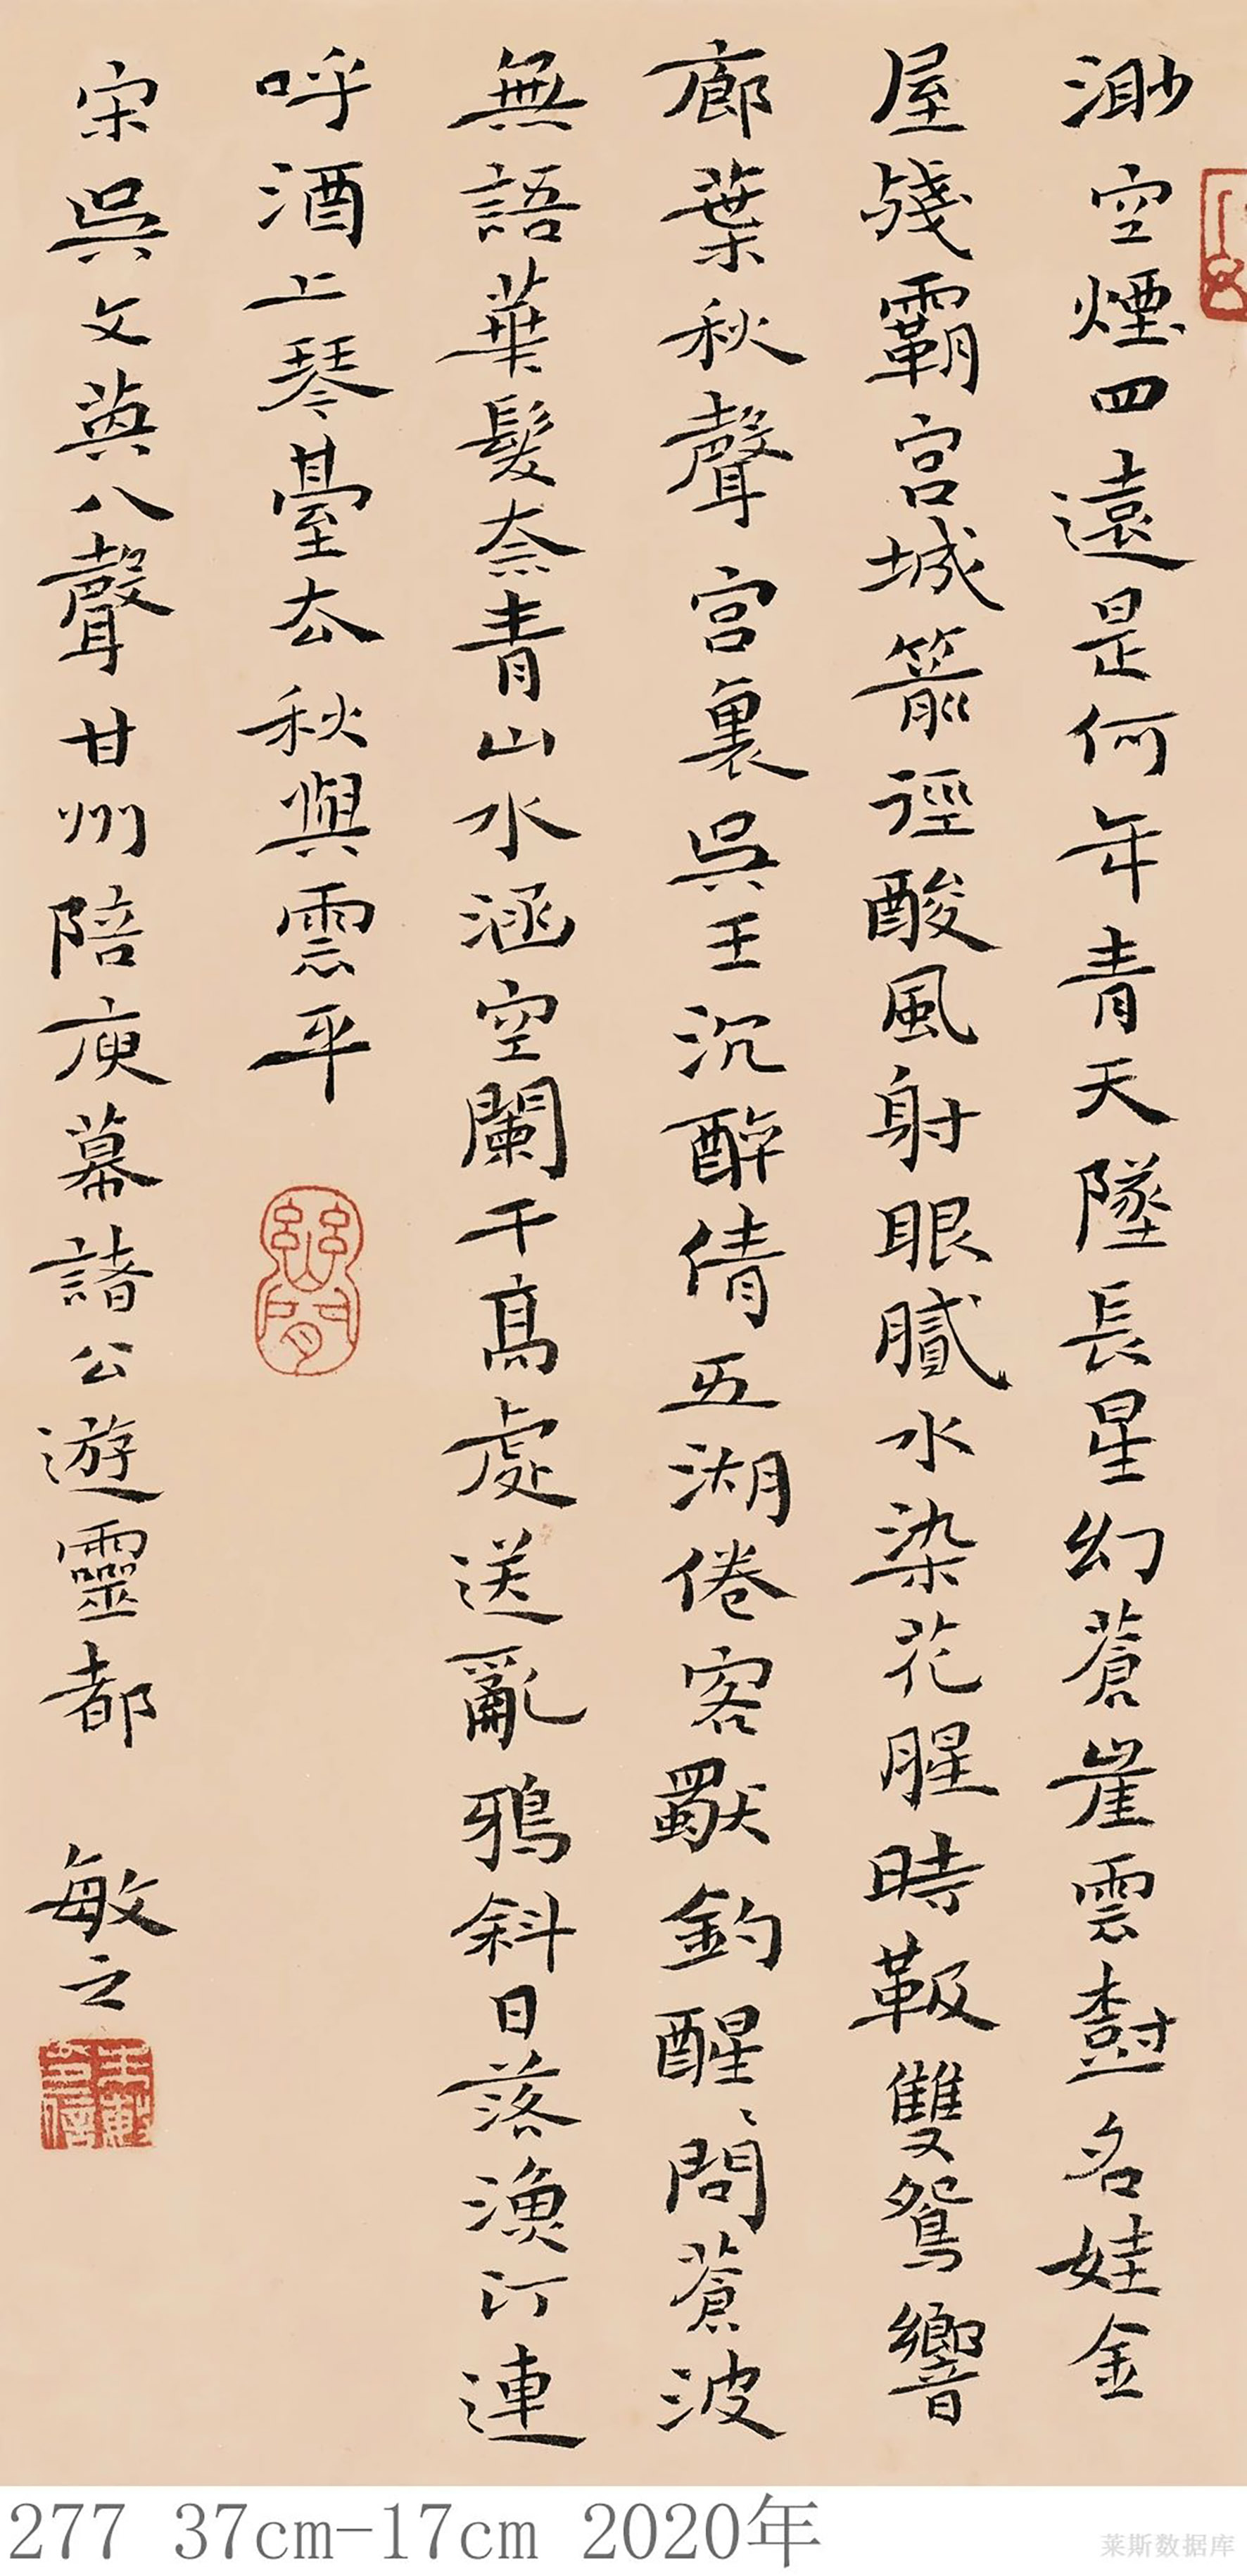 渺空煙四遠是何年青天墜長星幻蒼崖雲樹名娃金
屋殘霸宮城箭徑酸風射眼膩水染花腥時靸雙鴛響
廊葉秋聲宮裏吳王沉醉倩五湖倦客獸釣醒醒問蒼波
無語華髮奈青山水涵空闌干高處送亂鴉斜日落漁汀連
呼酒上琴臺去秋與雲平
宋吳文英八聲甘州陪庾幕諸公遊靈都 敏之
277 37cm-17cm 2020年
莱斯数据库